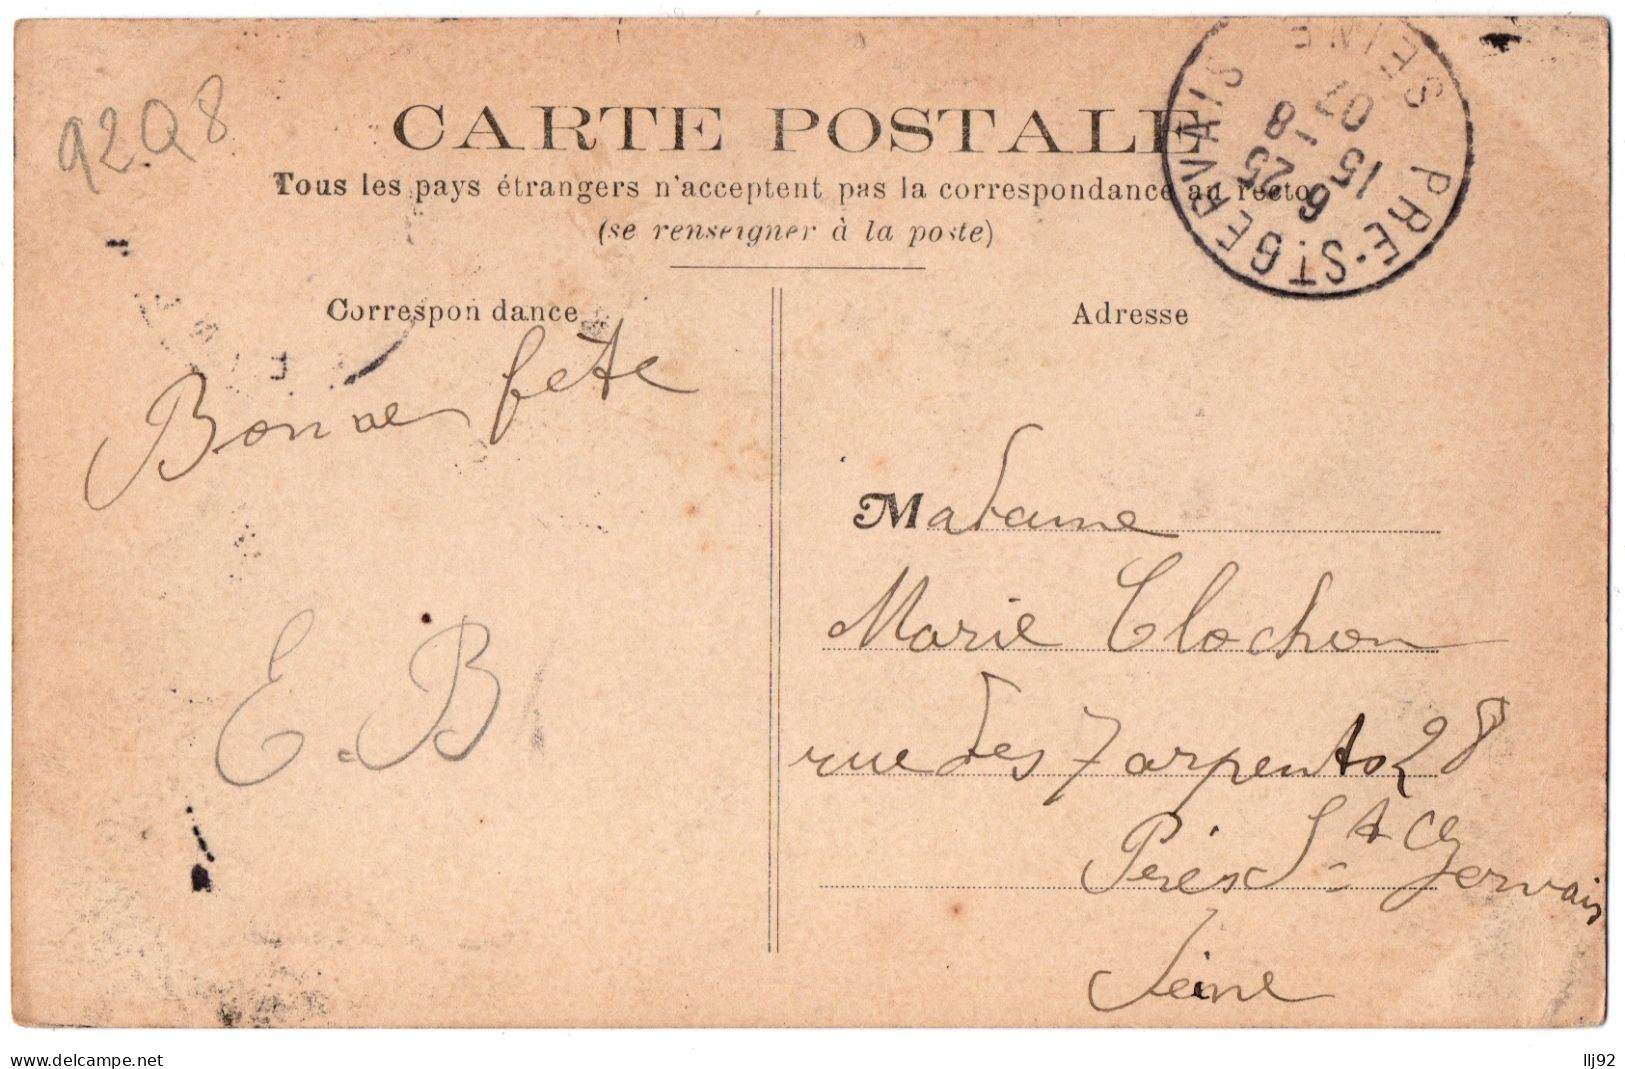 92Q8
CARTE POSTALE
Tous les pays étrangers n'acceptent pas la correspondance au recto
(se renseigner à la poste)
PRE-ST GERVAIS
SEINE
15 6
25 - 8
07
Correspondance
Bonne fête
E.B
Adresse
Madame
Marie Clochon
rue des 7 arpents 28
Prés St Gervais
Seine
www.delcampe.net
llj92